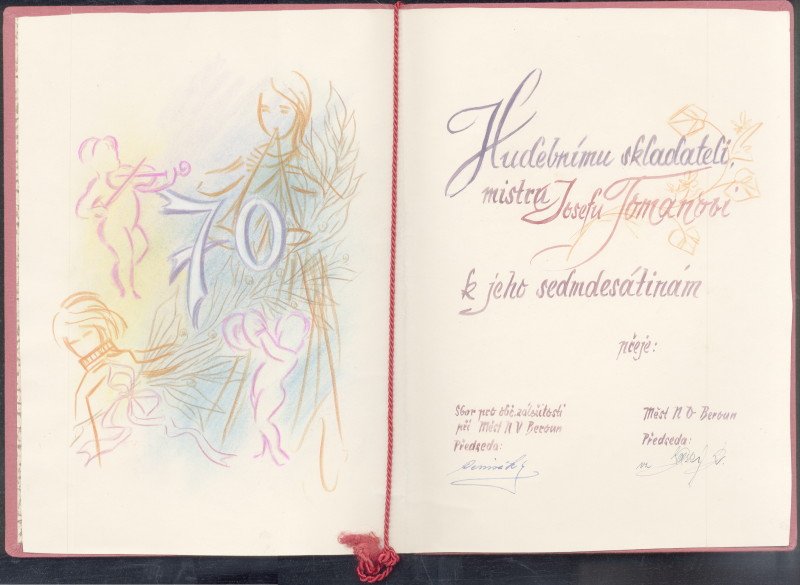 70
Hudebnímu skladateli,
mistru Josefu Tomanovi
k jeho sedmdesátinám
přeje:
Sbor pro obč. záležitosti
při Měst N V Beroun
Předseda:
Měst N V Beroun
Předseda: